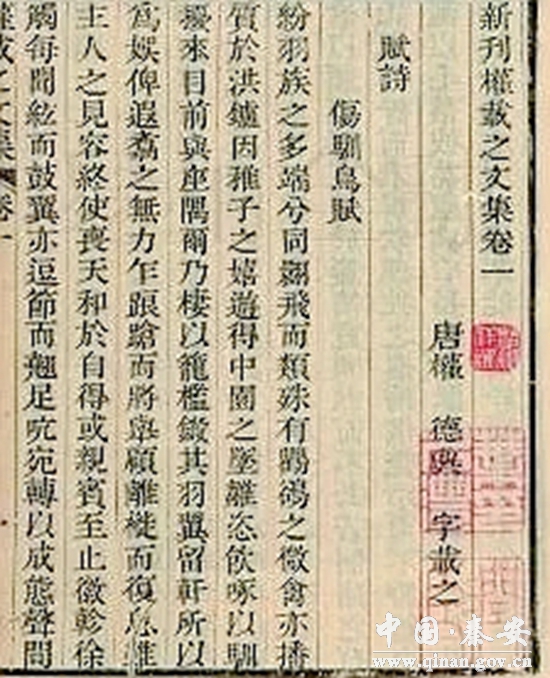 新刊權載之文集卷一
唐權 德輿 字載之
賦詩
傷馴鳥賦
紛羽族之多端兮同翾飛而類殊有鸜鵒之微禽亦播
質於洪鑪因稚子之嬉遊得中園之墜雛恣飲啄以馴
擾來目前與座隅爾乃棲以籠檻鎩其羽翼留軒所以
爲娛俾遐翥之無力乍踉蹌而將牽顧離褷而復息雖
主人之見容終使喪天和於自得或親賓至止徽軫徐
觸每聞絃而鼓翼亦逗節而翹足吭宛轉以成態聲間
權載之文集 卷一
中国·秦安
www.qinan.gov.cn